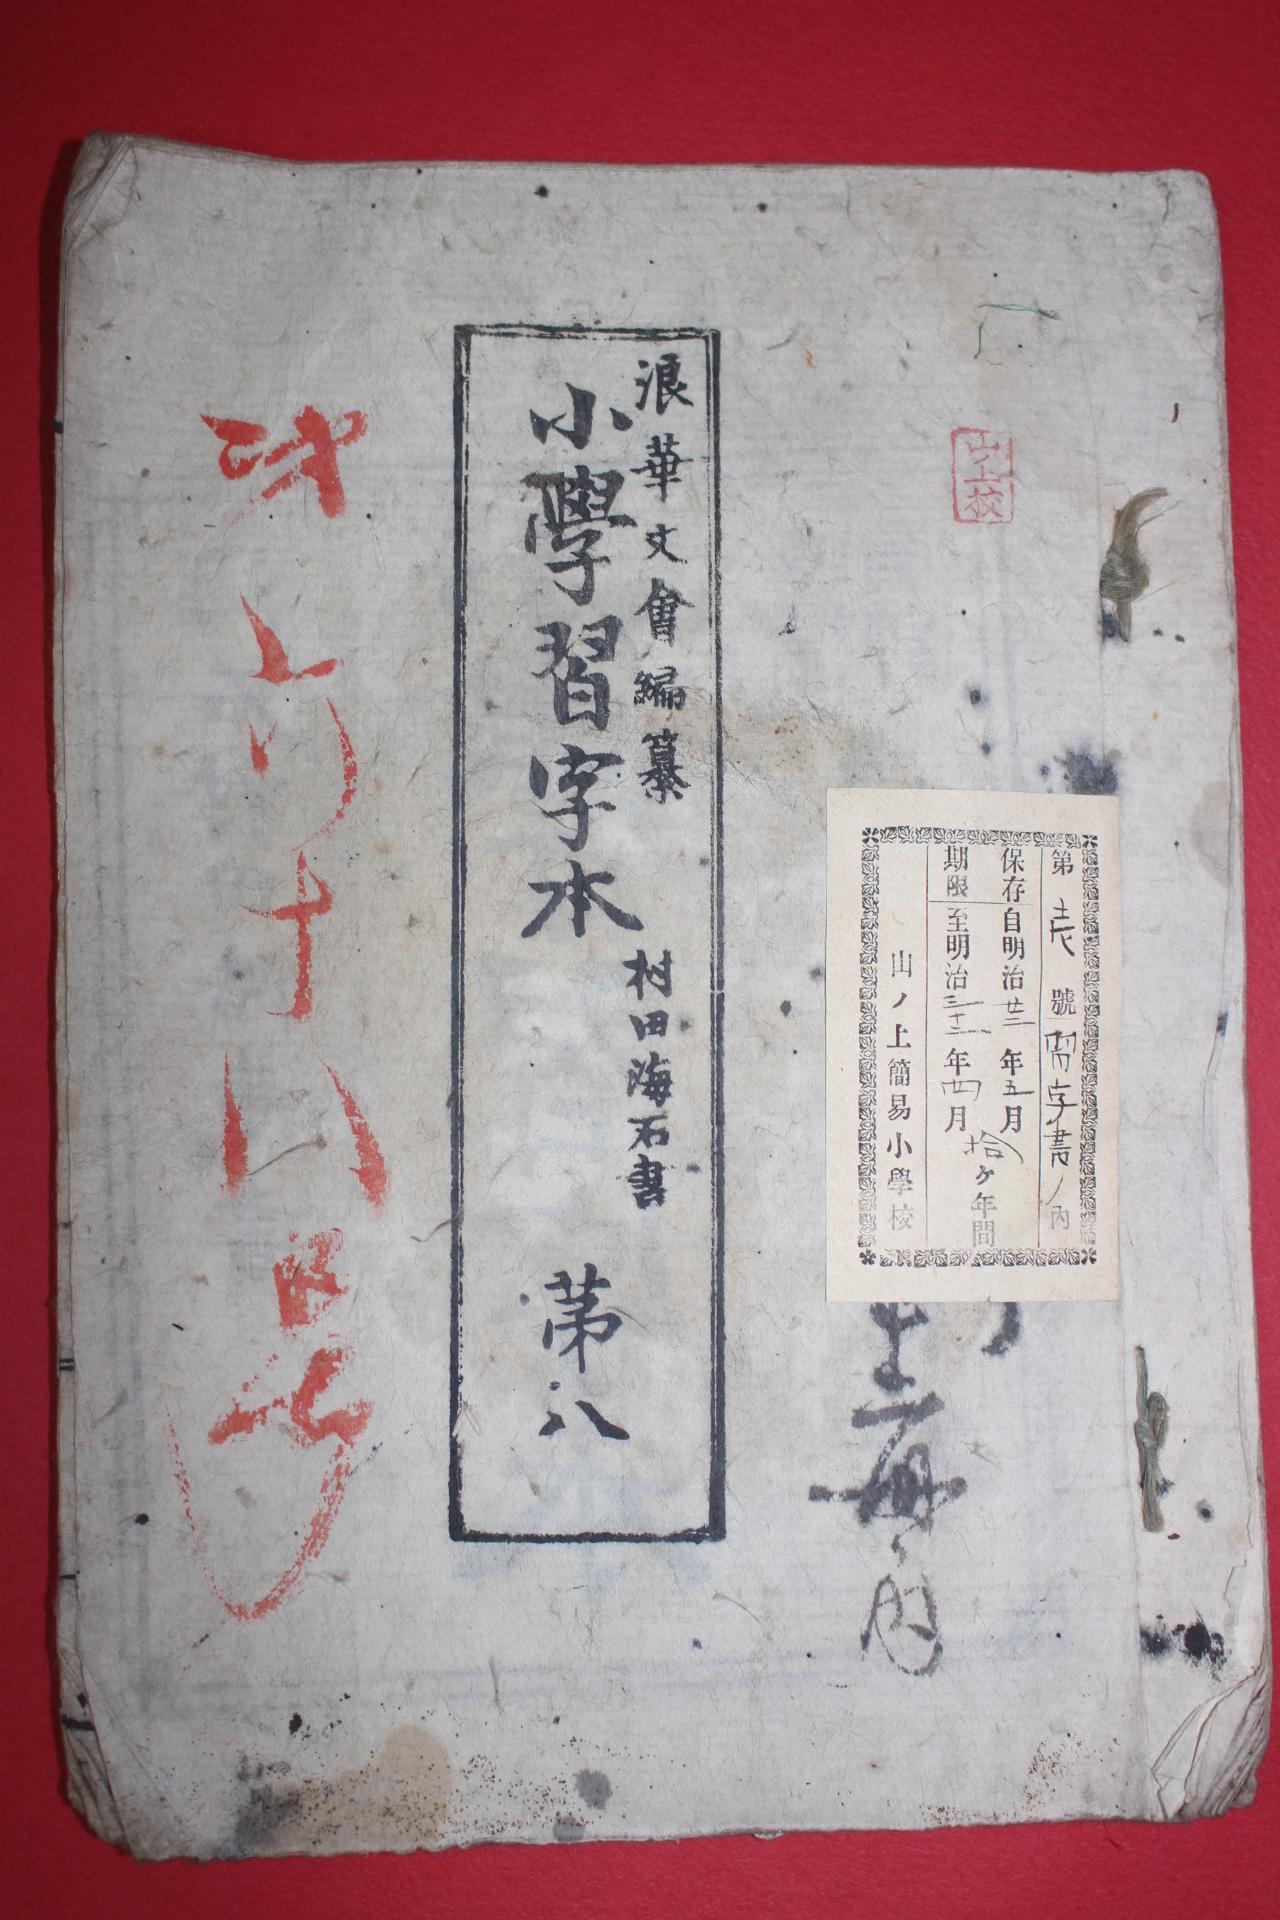 山上校
第 号 習字書ノ内
保存自明治廿二年五月
期限至明治三十二年四月
拾ヶ年間
山ノ上簡易小學校
冊ノ内
浪華文會編纂
小學習字本 第八
村田海石書
十八号